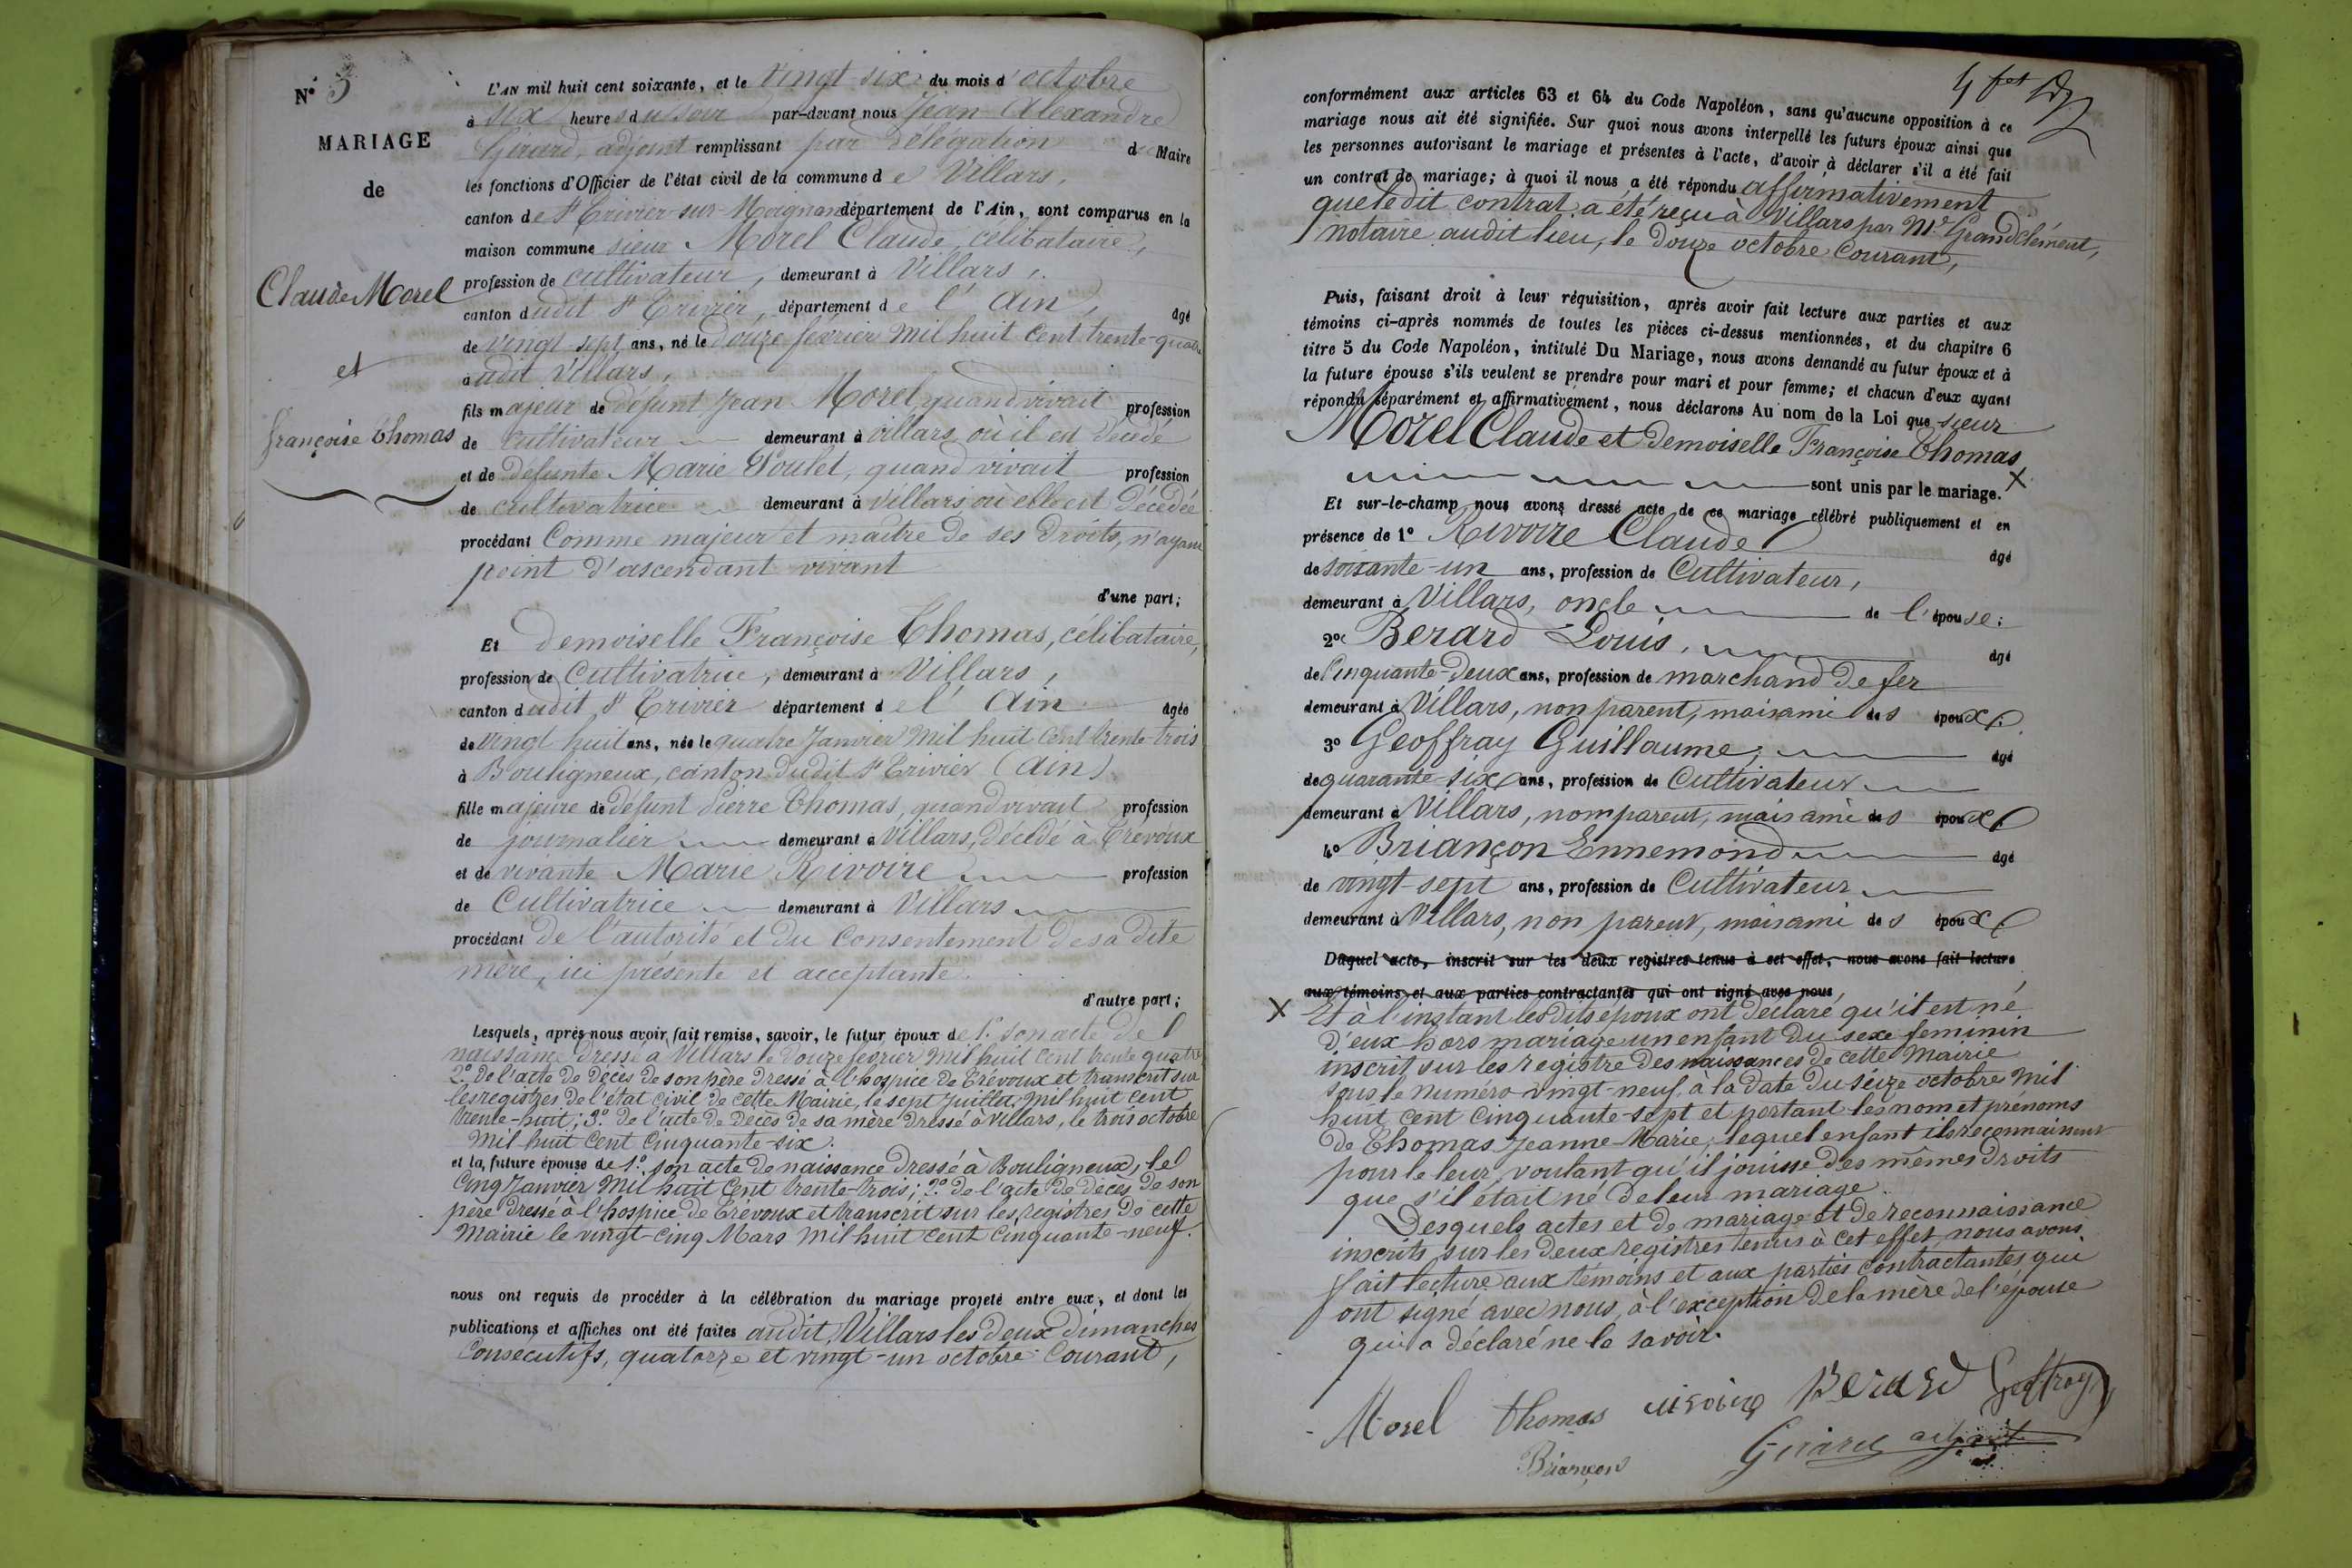 N° 5
MARIAGE
de
Claude Morel
et
françoise Thomas
L'AN mil huit cent soixante, et le vingt six du mois d'octobre
à six heures du soir par-devant nous Jean Alexandre
Girard, adjoint remplissant par délégation du Maire
les fonctions d'Officier de l'état civil de la commune de Villars,
canton de St Trivier-sur-Moignans département de l'Ain, sont comparus en la
maison commune sieur Morel Claude, célibataire,
profession de cultivateur, demeurant à Villars,
canton dudit St Trivier, département de l'Ain, âgé
de vingt-sept ans, né le douze février mil huit cent trente-quatre
audit Villars,
fils majeur de défunt Jean Morel quand vivait profession
de cultivateur demeurant à Villars où il est décédé
et de défunte Marie Poulet, quand vivait profession
de cultivatrice demeurant à Villars où elle est décédée
procédant comme majeur et maître de ses droits, n'ayant
point d'ascendant vivant
d'une part;
Et demoiselle Françoise Thomas, célibataire,
profession de Cultivatrice, demeurant à Villars,
canton dudit St Trivier département de l'Ain âgée
de vingt huit ans, née le quatre Janvier mil huit cent trente-trois
à Bouligneux, canton dudit St Trivier (Ain)
fille majeure de défunt Pierre Thomas, quand vivait profession
de journalier demeurant à Villars, décédé à Trévoux
et de vivante Marie Rivoire profession
de Cultivatrice demeurant à Villars
procédant de l'autorité et du consentement de sa dite
mère, ici présente et acceptante.
d'autre part;
Lesquels, après nous avoir fait remise, savoir, le futur époux de 1° son acte de
naissance dressé à Villars le douze février mil huit cent trente quatre
2° de l'acte de décès de son père dressé à l'hospice de Trévoux et transcrit sur
les registres de l'état civil de cette Mairie, le sept Juillet, mil huit cent
trente-huit; 3° de l'acte de décès de sa mère dressé à Villars, le trois octobre
mil huit cent cinquante-six.
et la future épouse de 1° son acte de naissance dressé à Bouligneux, le
cinq Janvier mil huit cent trente-trois; 2° de l'acte de décès de son
père dressé à l'hospice de Trévoux et transcrit sur les registres de cette
Mairie le vingt-cinq Mars mil huit cent cinquante-neuf.
nous ont requis de procéder à la célébration du mariage projeté entre eux, et dont les
publications et affiches ont été faites audit Villars les deux dimanches
consécutifs, quatorze et vingt-un octobre courant,
conformément aux articles 63 et 64 du Code Napoléon, sans qu'aucune opposition à ce
mariage nous ait été signifiée. Sur quoi nous avons interpellé les futurs époux ainsi que
les personnes autorisant le mariage et présentes à l'acte, d'avoir à déclarer s'il a été fait
un contrat de mariage; à quoi il nous a été répondu affirmativement
que ledit contrat a été reçu à Villars par Me Grandclément,
notaire audit lieu, le douze octobre courant,
Puis, faisant droit à leur réquisition, après avoir fait lecture aux parties et aux
témoins ci-après nommés de toutes les pièces ci-dessus mentionnées, et du chapitre 6
titre 5 du Code Napoléon, intitulé Du Mariage, nous avons demandé au futur époux et à
la future épouse s'ils veulent se prendre pour mari et pour femme; et chacun d'eux ayant
répondu séparément et affirmativement, nous déclarons Au nom de la Loi que sieur
Morel Claude et demoiselle Françoise Thomas
sont unis par le mariage. X
Et sur-le-champ nous avons dressé acte de ce mariage célébré publiquement et en
présence de 1° Rivoire Claude âgé
de soixante-un ans, profession de Cultivateur,
demeurant à Villars, oncle de l'épouse;
2° Berard Louis, âgé
de Cinquante-deux ans, profession de marchand de fer
demeurant à Villars, non parent, mais ami des époux;
3° Geoffray Guillaume, âgé
de quarante-six ans, profession de Cultivateur
demeurant à Villars, nom parent, mais ami des époux;
4° Briançon Ennemond âgé
de vingt-sept ans, profession de Cultivateur
demeurant à Villars, non parent, mais ami des époux
Duquel acte, inscrit sur les deux registres tenus à cet effet, nous avons fait lecture
aux témoins et aux parties contractantes qui ont signé avec nous
X Et à l'instant lesdits époux ont déclaré qu'il est né
d'eux hors mariage un enfant du sexe feminin
inscrit sur les registre des naissances de cette Mairie
sous le numéro vingt-neuf, à la date du seize octobre mil
huit cent cinquante-sept et portant les nom et prénoms
de Thomas Jeanne-Marie, lequel enfant ils reconnaissent
pour le leur, voulant qu'il jouisse des mêmes droits
que s'il était né de leur mariage.
Desquels actes et de mariage et de reconnaissance
inscrits sur les deux registres tenus à cet effet, nous avons
fait lecture aux témoins et aux parties contractantes qui
ont signé avec nous, à l'exception de la mère de l'épouse
qui a déclaré ne le savoir.
Morel thomas rivoire Berard Geoffray
Briançon Girard adjoint